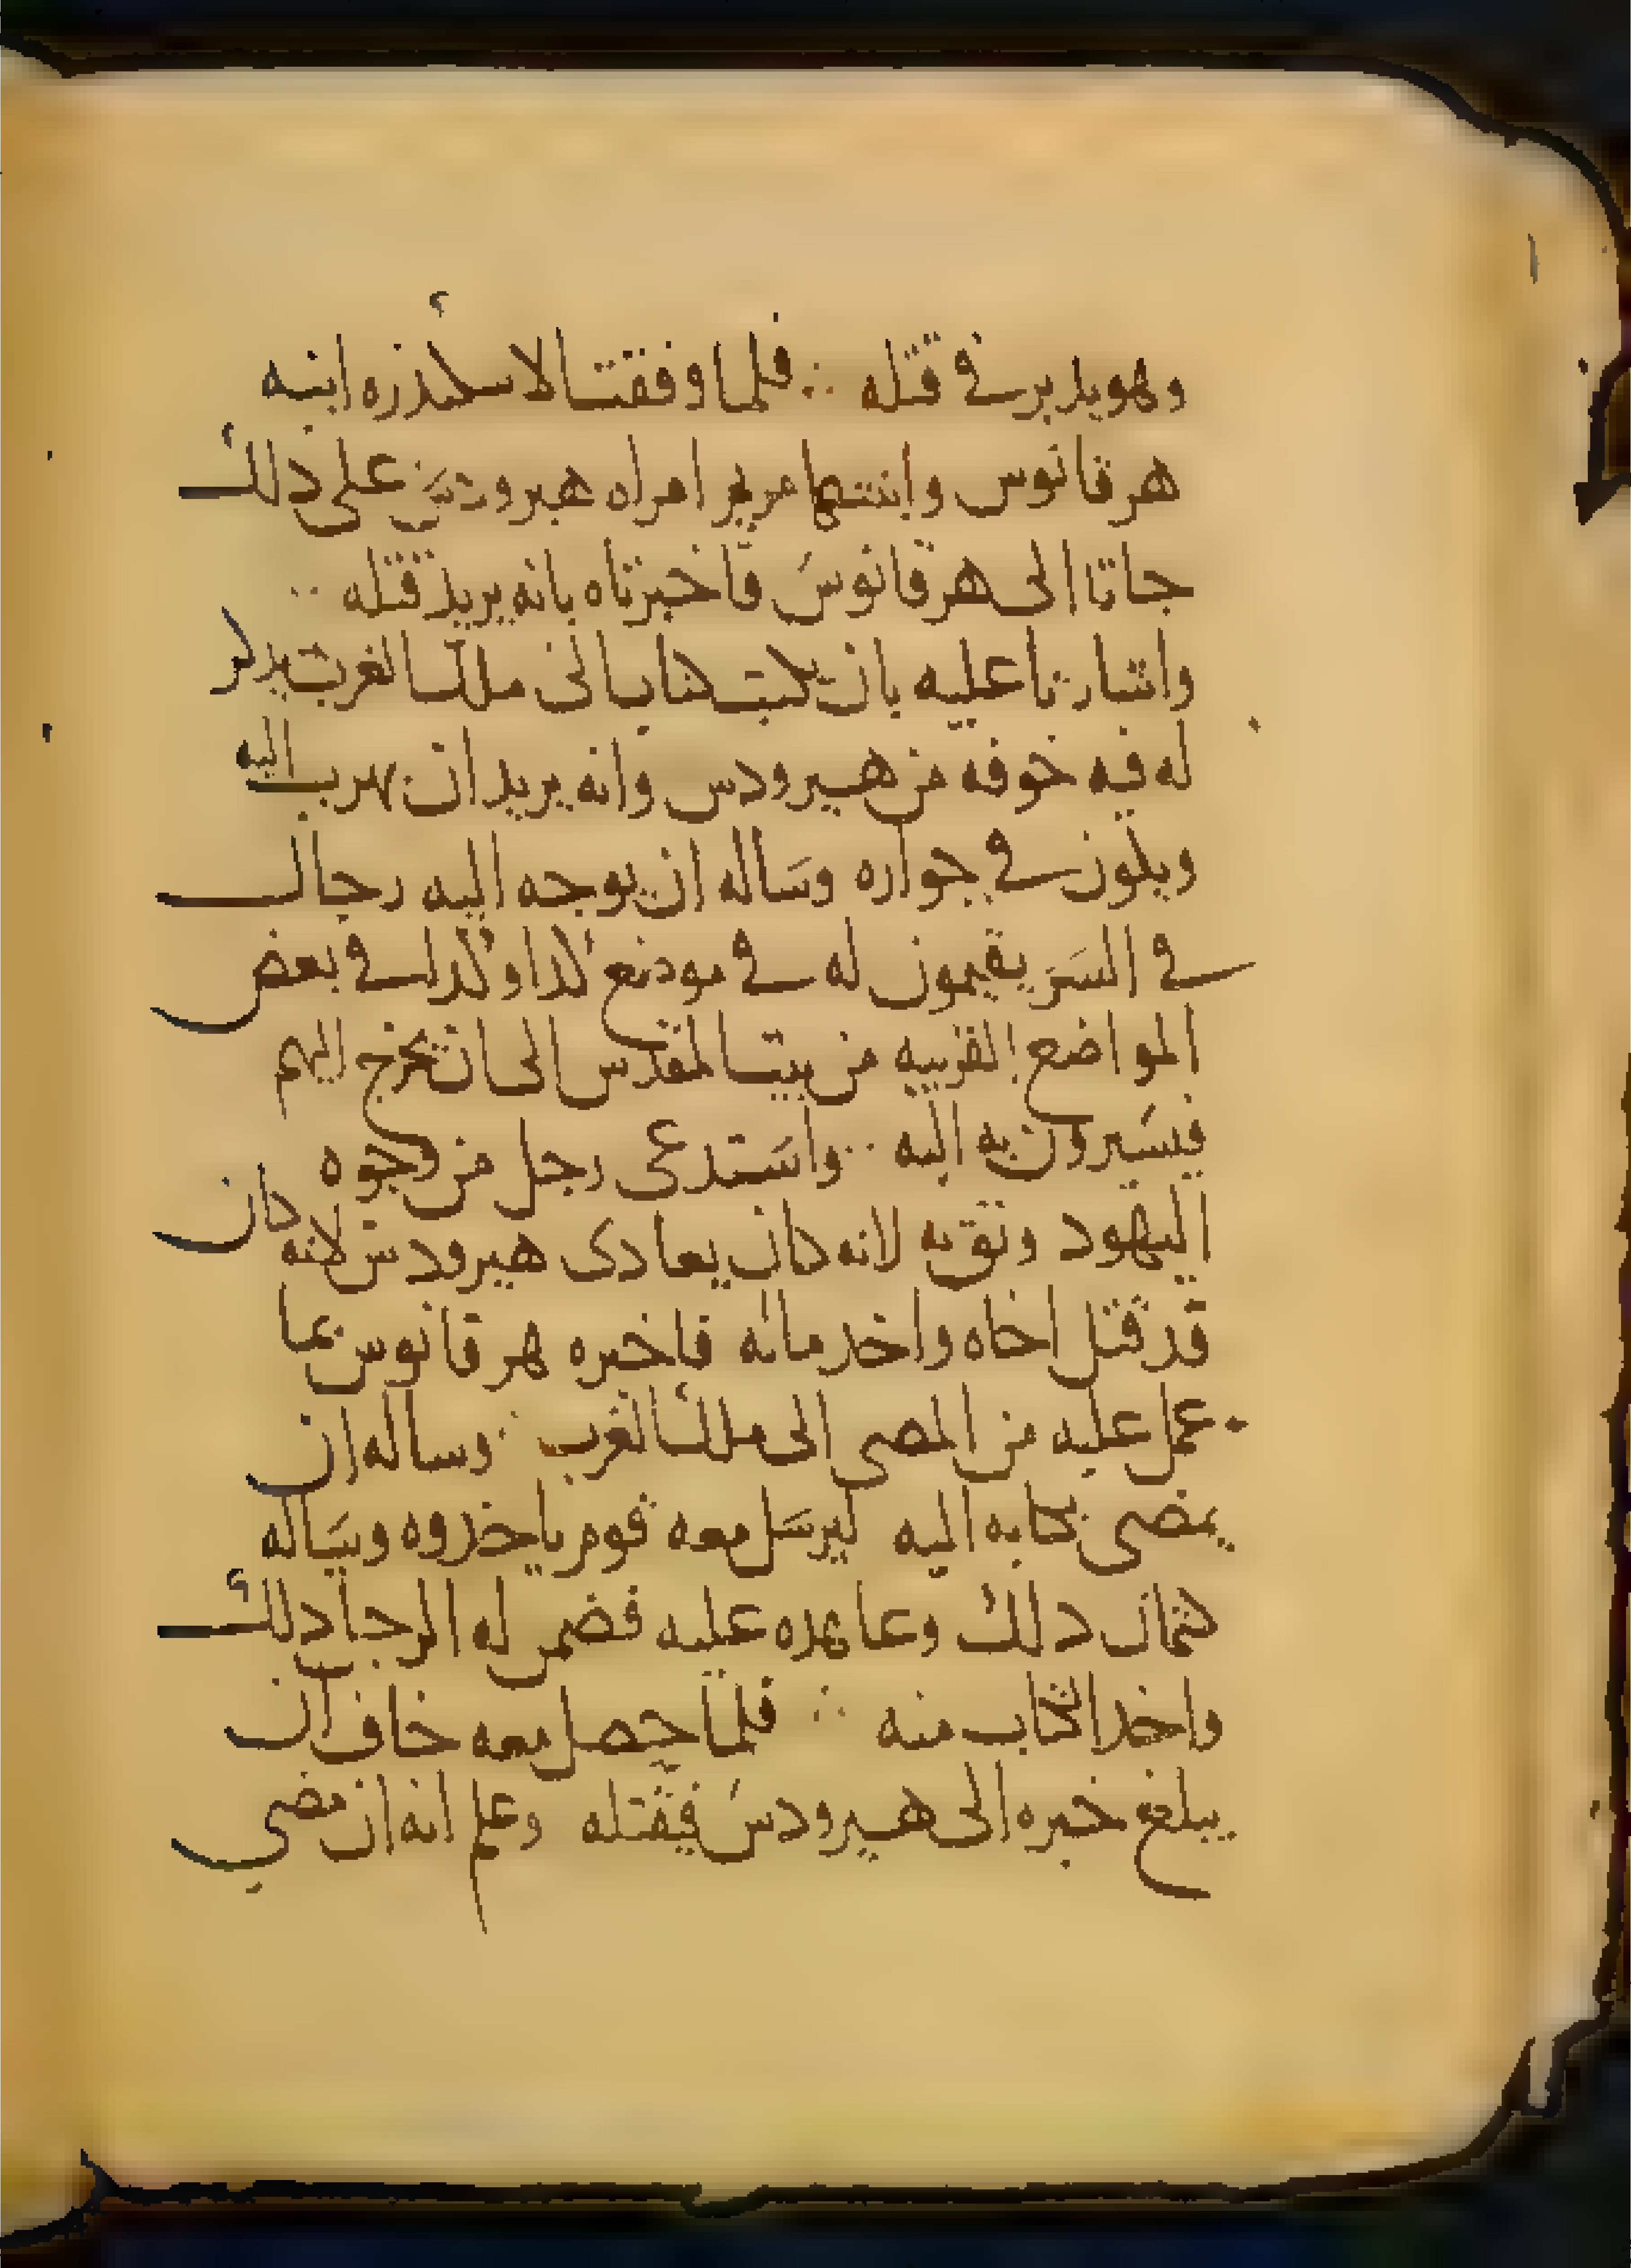 وهو يدبر في قتله ∴ فلما وقفتا لاسكندره ابنه
هرقانوس وابنتها مريم امراه هيرودس على دلك
جاتا الى هرقانوس فاخبرتاه بانه يريد قتله ..
واشارتا عليه بان يكتب كتابا الى ملك العرب يدكر
له فيه خوفه من هيرودس وانه يريد ان يهرب اليه
ويكون في جواره وساله ان يوجه اليه رجال
في السر يقيمون له في موضع كدا وكدا في بعض
المواضع القريبه من بيت المقدس الى ان يخرج اليهم
فيسيرون به اليه .. واستدعى رجل من وجوه
اليهود وثق به لانه كان يعادى هيرودس لانه كان
قد قتل اخاه واخد ماله فاخبره هرقانوس بما
عمل عليه من المصى الى ملك العرب .. وساله ان
يمضى بكتابه اليه ليرسل معه قوم ياخدوه وساله
كتمان دلك وعاهده عليه فضمن له الرجل دلك
واخد الكتاب منه ∴ فلما حصل معه خاف ان
يبلغ خبره الى هيرودس فيقتله وعلم انه ان مضي